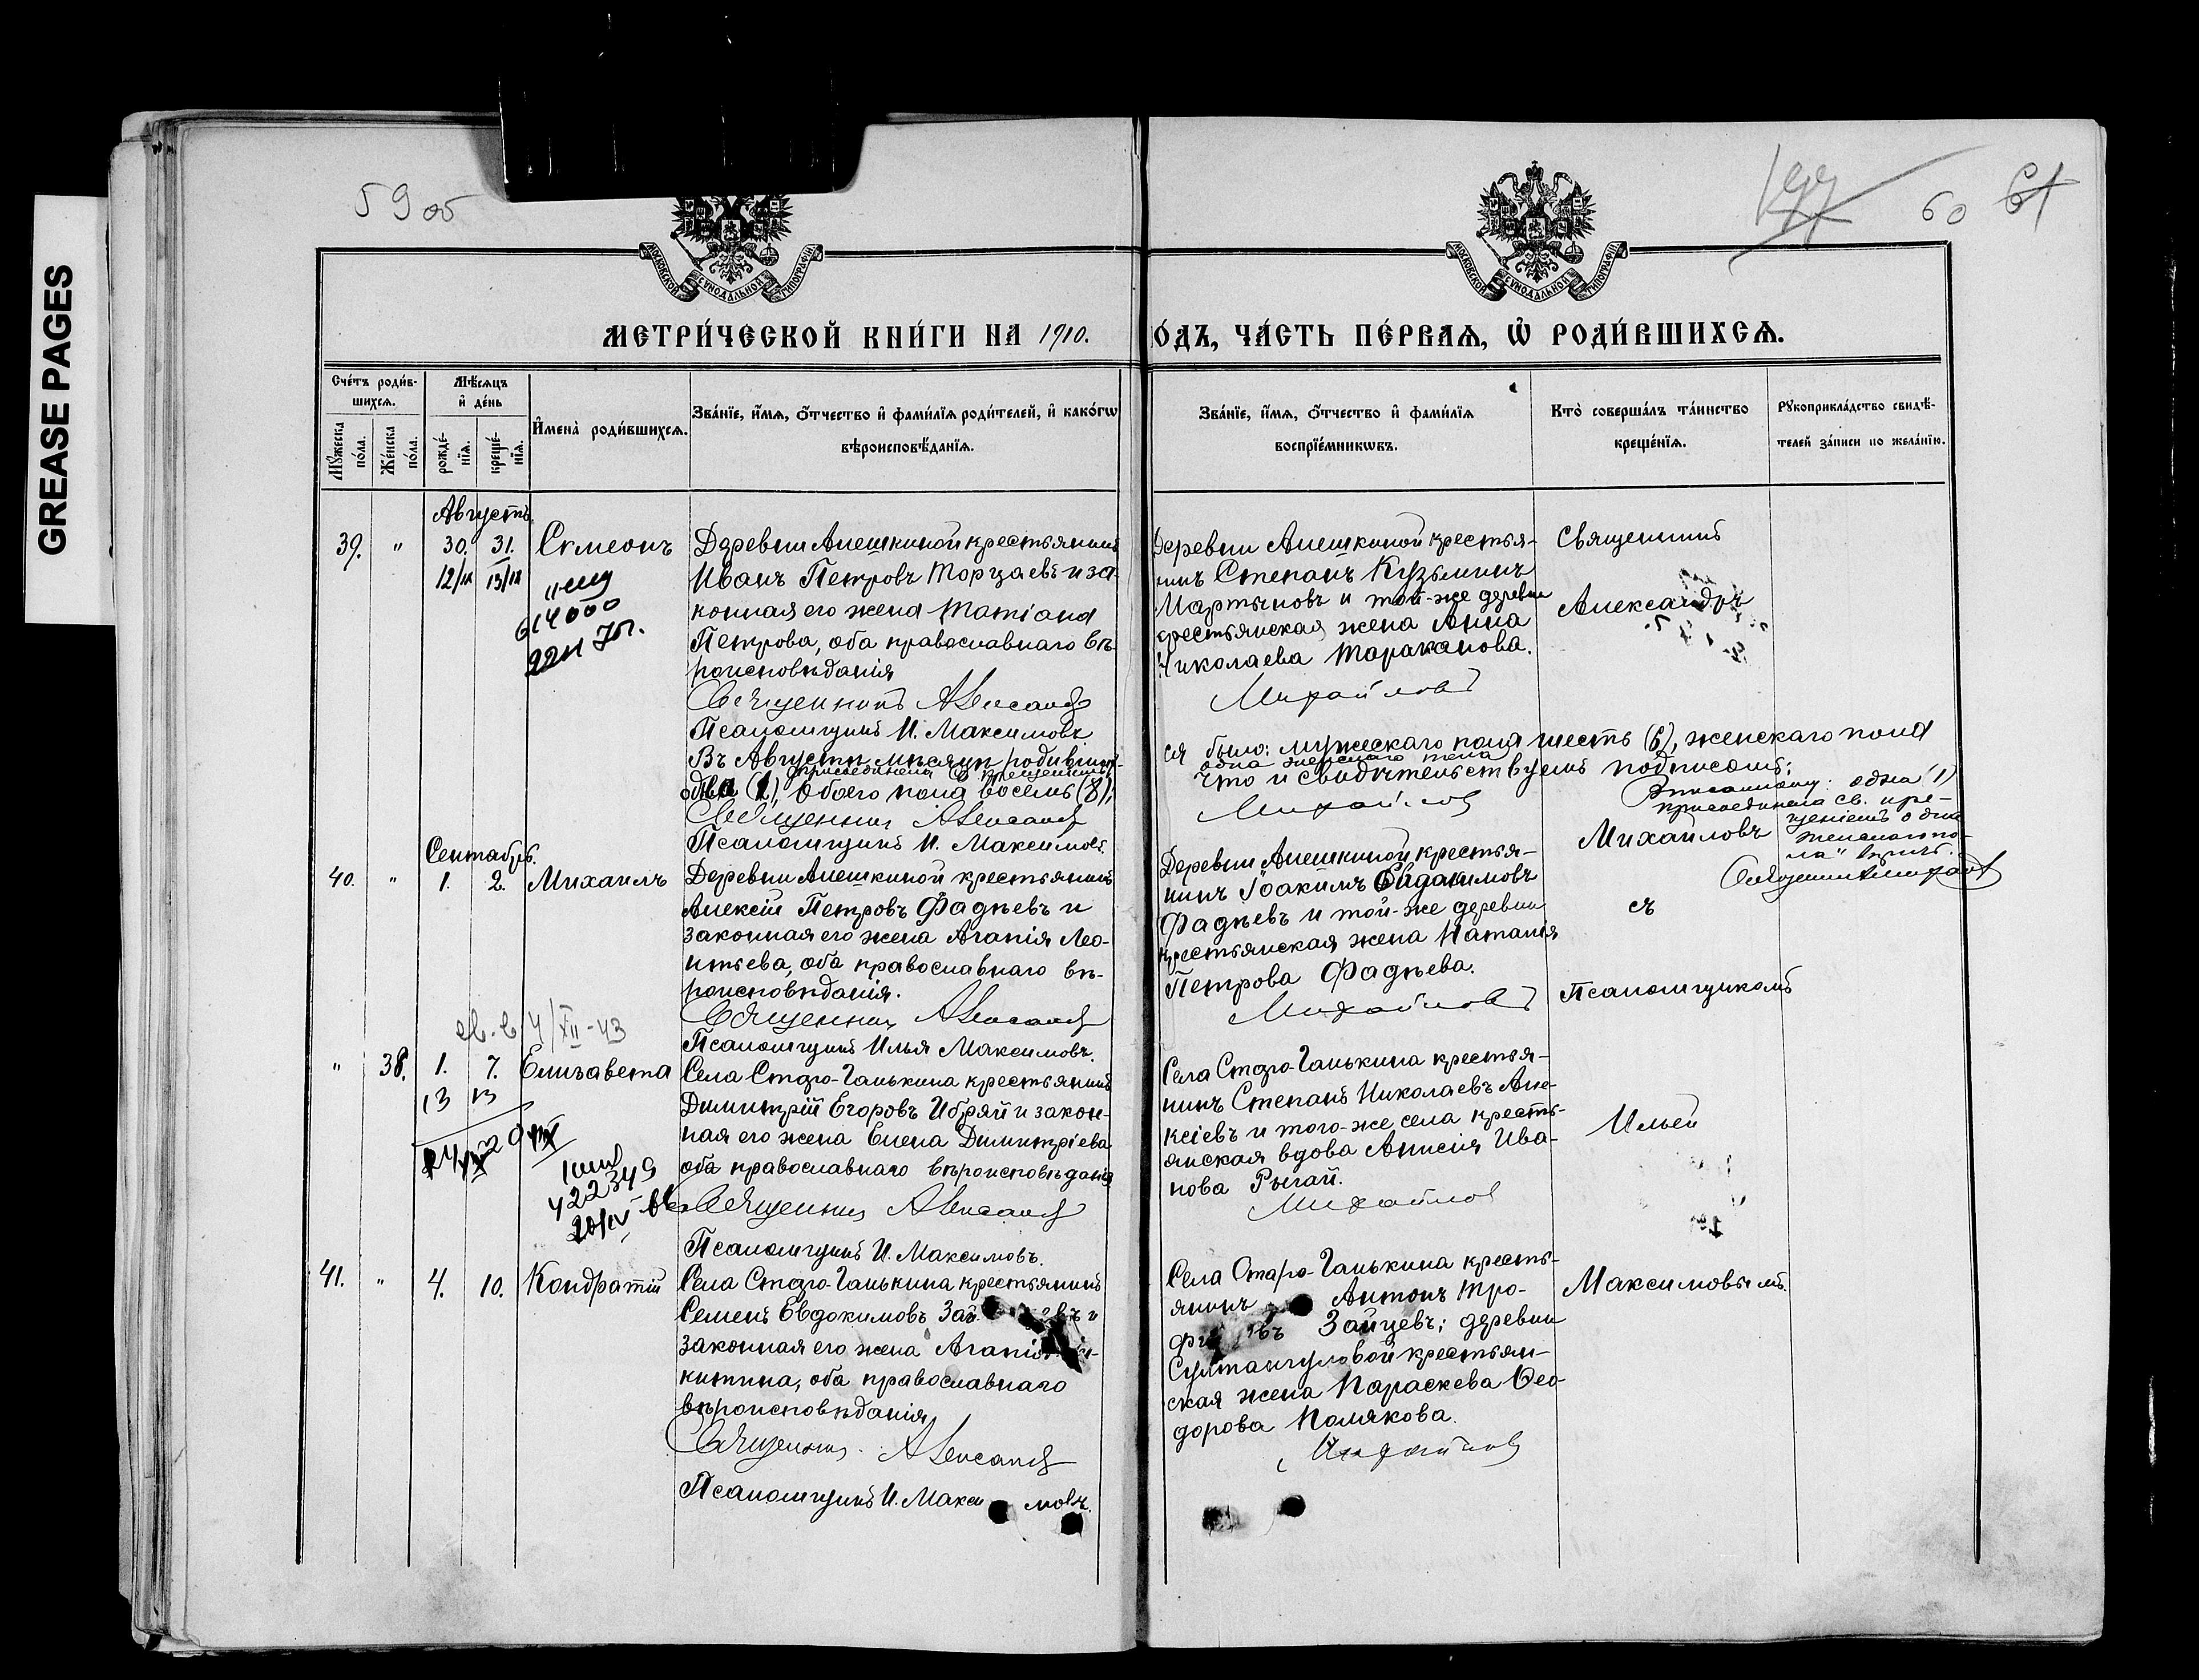 GREASE PAGES
59 об
60 61
МОСКОВСКОЙ СѴНОДАЛЬНОЙ ТИПОГРАФІИ
МОСКОВСКОЙ СѴНОДАЛЬНОЙ ТИПОГРАФІИ
МЕТРИ́ЧЕСКОЙ КНИ́ГИ НА 1910. ОДЪ, ЧА́СТЬ ПЕ́РВАѦ, Ѡ҆ РОДИ́ВШИХСѦ.
Счéтъ роди́в-
шихсѧ.
Мѣ́сѧцъ
и҆ де́нь
Мꙋ́жеска по́ла.
Же́нска по́ла.
рожде́-
нїѧ.
креще́-
нїѧ.
И҆мена̀ роди́вшихсѧ.
Зва́нїе, и҆́мѧ, ѻ҆́тчество и҆ фами́лїѧ роди́телей, и҆ како́гѡ
вѣроисповѣ́данїѧ.
Зва́нїе, и҆́мѧ, ѻ҆́тчество и҆ фами́лїѧ
воспрїе́мникѡвъ.
Кто̀ соверша́лъ та́инство
креще́нїѧ.
Рꙋкоприкла́дство свидѣ́-
телей за́писи по жела́нїю.
Августъ.
39. " 30. 31. Симеонъ
12/IX 13/IX
614000
Деревни Алешкиной крестьянинъ
Иванъ Петровъ Торцаевъ и за-
конная его жена
Петрова, оба православнаго вѣ-
роисповѣданія
Священникъ Александръ
Псаломщикъ И. Максимовъ
Деревни Алешкиной крестья-
нинъ Степанъ Кузьминъ
Мартыновъ и той-же деревни
крестьянская жена Анна
Николаева Тараканова.
Михайловъ
Священникъ
Александръ
Въ Августѣ мѣсяцѣ родивших-
ся было: мужескаго пола шесть (6), женскаго пола
два (2), Обоего пола восемь (8);
Что и свидѣтельствуемъ подписомъ:
Священникъ Александръ
Михайловъ
Псаломщикъ И. Максимовъ.
одна (1)
присоединена св. кре-
щеніемъ одна
женскаго по-
ла"
Сентябрь.
40. " 1. 2. Михаилъ
Деревни Алешкиной крестьянинъ
Алексій Петровъ Фадѣевъ и
законная его жена Агапія Лео-
нтьева, оба православнаго вѣ-
роисповѣданія.
Священникъ Александръ
Псаломщикъ Илья Максимовъ.
Деревни Алешкиной крестья-
нинъ Іоакимъ Евдокимовъ
Фадѣевъ и той-же деревни
крестьянская жена Наталія
Петрова Фадѣева.
Михайловъ
Михайловъ
съ
Псаломщикомъ
4/XII-43
" 38. 1. 7. Елизавета
13 13
422349
Села Старо-Ганькина крестьянинъ
Димитрій Егоровъ Ибряй и закон-
ная его жена Елена Димитріева
оба православнаго вѣроисповѣданія
Священникъ Александръ
Псаломщикъ И. Максимовъ.
Села Старо-Ганькина крестья-
нинъ Степанъ Николаевъ Але-
ксіевъ и того-же села кресть-
янская вдова Анисія Ива-
нова
Михайловъ
Ильей
41. " 4. 10. Кондратій
Села Старо-Ганькина крестьянинъ
Семенъ Евдокимовъ и
законная его жена Агапія
китина, оба православнаго
вѣроисповѣданія
Священникъ Александръ
Псаломщикъ И. Максимовъ.
Села Старо-Ганькина кресть-
янинъ Антонъ Тро-
Зайцевъ; деревни
Султангуловой крестьян-
ская жена Параскева Ѳео-
дорова Полякова.
Михайловъ
Максимовымъ.